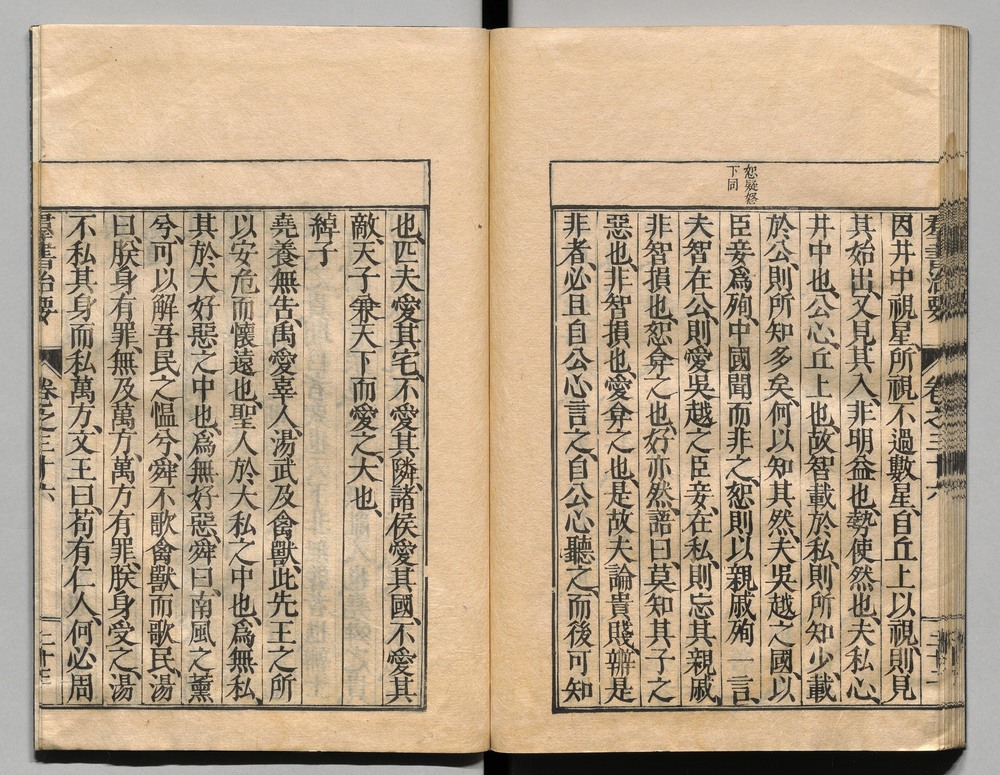 恕疑怒
下同
因井中視星、所視不過數星、自丘上以視、則見
其始出、又見其入、非明益也、勢使然也、夫私心、
井中也、公心、丘上也、故智載於私、則所知少、載
於公、則所知多矣、何以知其然、夫吳越之國、以
臣妾爲殉、中國聞而非之、恕則以親戚殉一言、
夫智在公、則愛吳越之臣妾、在私、則忘其親戚、
非智損也、恕弇之也、好亦然、語曰、莫知其子之
惡也、非智損也、愛弇之也、是故夫論貴賤、辨是
非者、必且自公心言之、自公心聽之、而後可知
也、匹夫愛其宅、不愛其隣、諸侯愛其國、不愛其
敵、天子兼天下而愛之、大也、
綽子
堯養無告、禹愛辜人、湯武及禽獸、此先王之所
以安危而懷遠也、聖人於大私之中也、爲無私、
其於大好惡之中也、爲無好惡、舜曰、南風之薰
兮、可以解吾民之慍兮、舜不歌禽獸而歌民、湯
曰、朕身有罪、無及萬方、萬方有罪、朕身受之、湯
不私其身而私萬方、文王曰、苟有仁人、何必周
羣書治要 卷之三十六